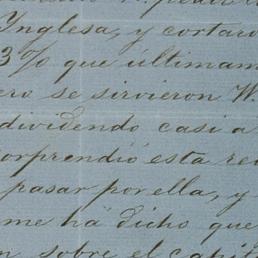 Ynglesa, y cortaro
3% que últimam
ero se sirvieron W.
dividendo casi a
orprendió esta re
pasar por ella, y
me há dicho que
sobre el capit